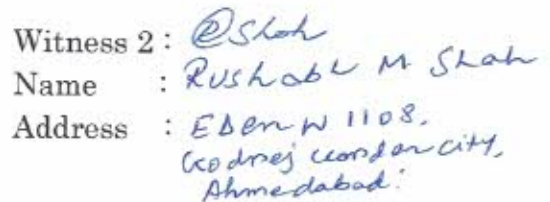 Witness 2 : @Shah
Name : Rushabh M Shah
Address : Eden W 1108,
Godrej Garden City,
Ahmedabad.